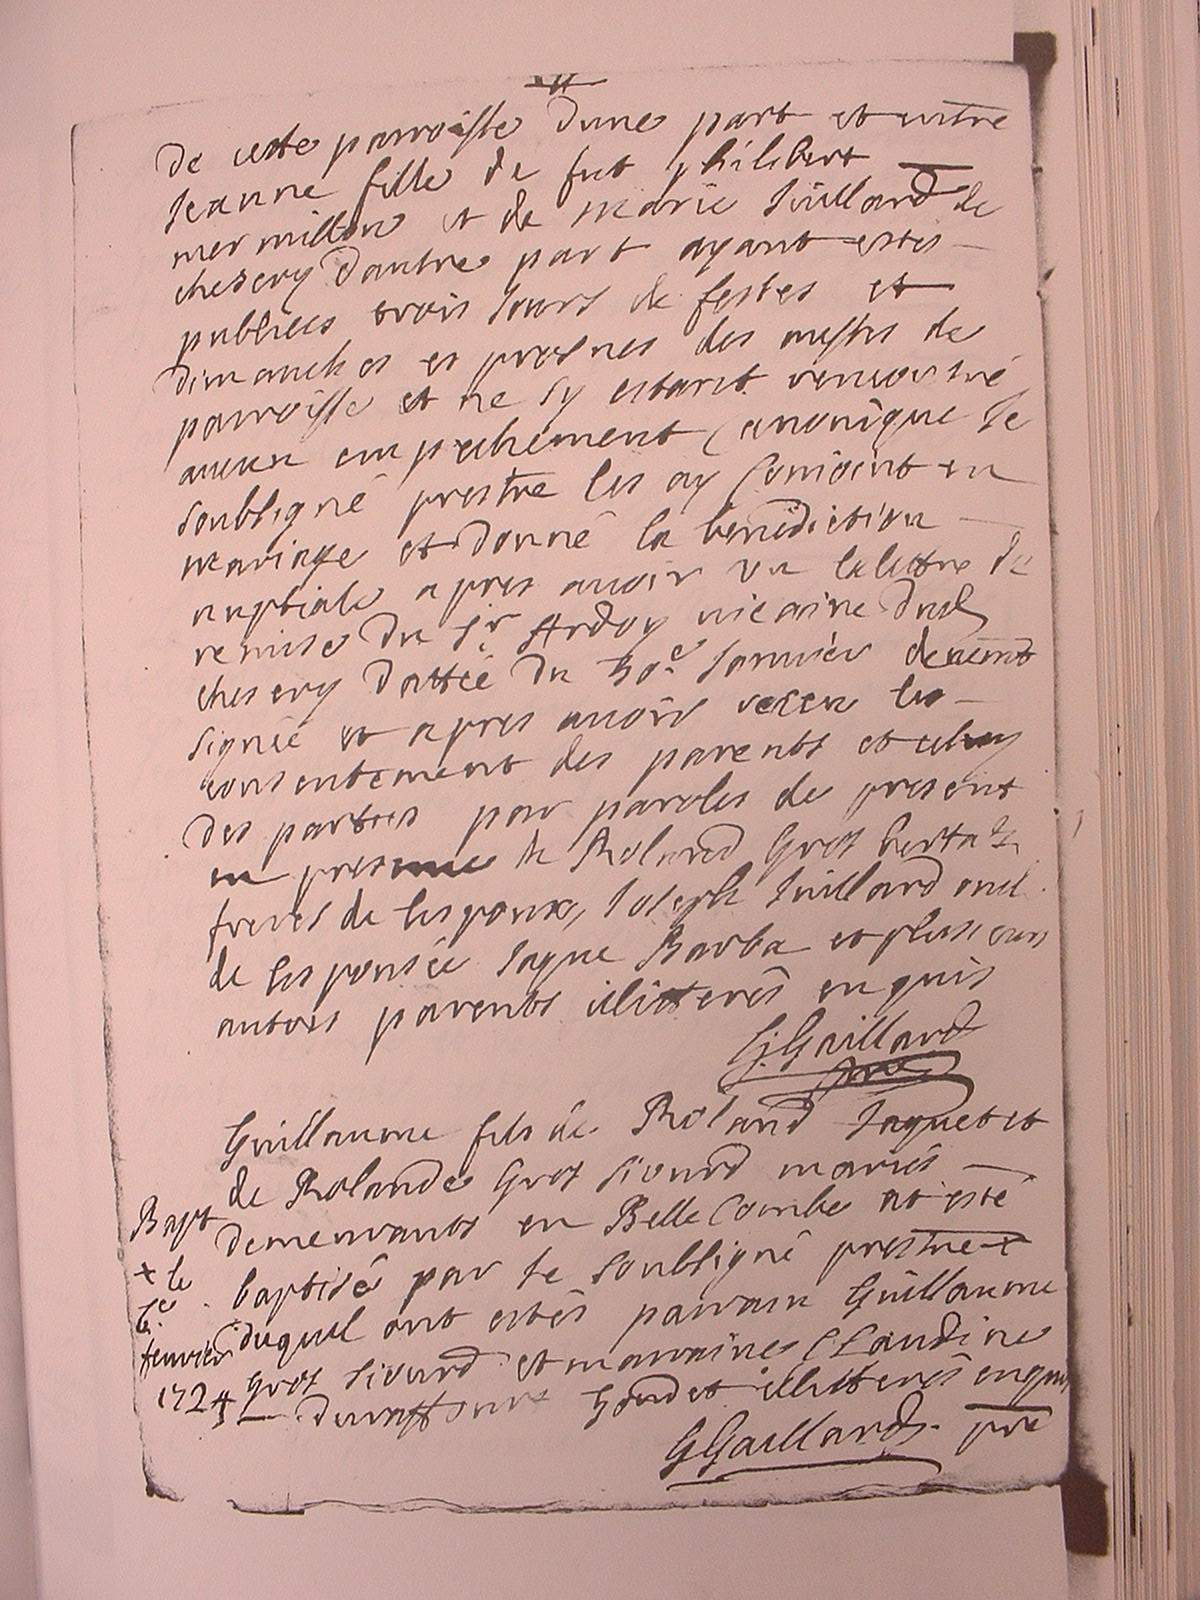 de cette parroisse dune part et entre
Jeanne fille de fut philibert
mermillon et de marie Juillard de
chesery dautre part ayant estes
publiees trois Jours de festes et
dimanches es prosnes des messes de
parroisse et ne sy estant rencontré
aucun empechement canonique Je
soubsigné prestre les ay conioint en
mariage et donné la benediction
nuptiale apres auoir vu la lettre de
remise du Sr Ardoy vicaire dud
chesery dattée du 30e Januier
signée et apres auoir receu les
consentement des parents et celuy
des parties par paroles de present
en presence de Roland Grosgurtaz
freres de lespoux, Joseph Juillard oncl
de lespousée Jaque Barba et plusieurs
autres parents illitterés enquis
G. Gaillard
pre
Guillaume fils de Roland Jaquet et
de Rolande Gros Siourd mariés
demeurants en Belle Combe at esté
baptisé par Je soubsigné prestre et
duquel ont estés parrain Guillaume
Gros Siourd et marraine Claudine
duraffour Goudet illitterés enquis
GGaillard pre
Bapt
+ le
6e
feurier
1724